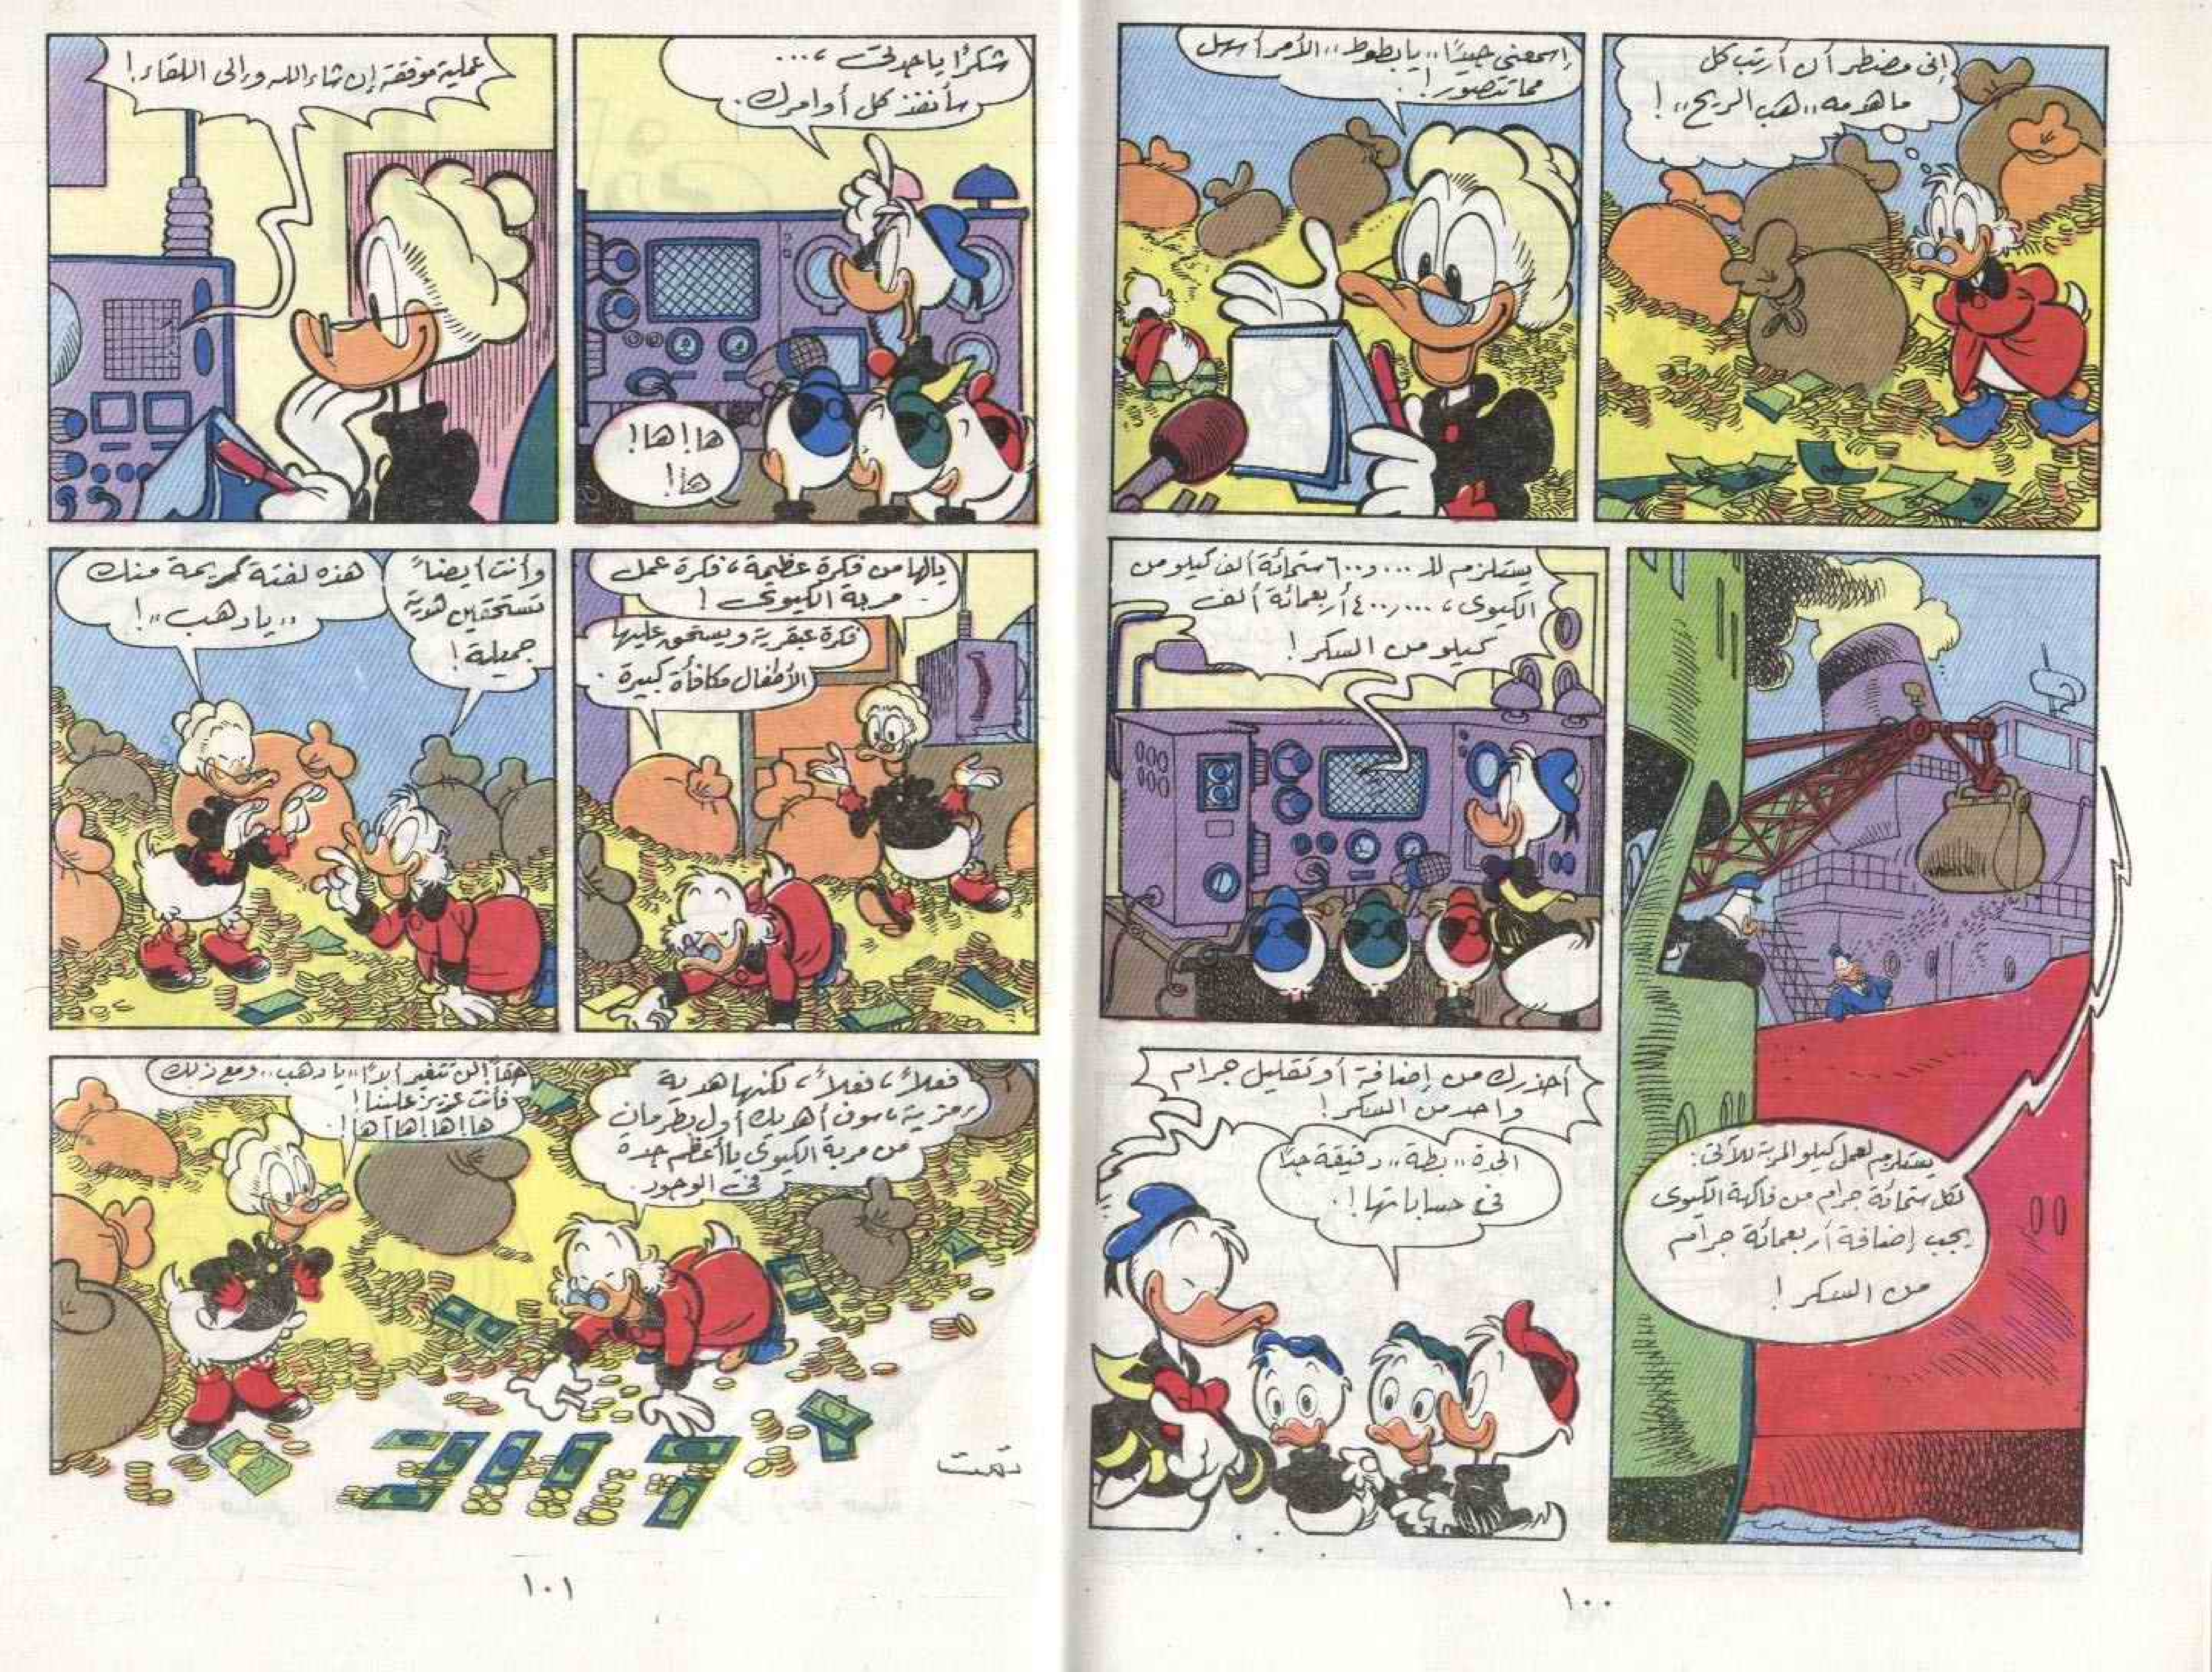 إنى مضطر أن أرتب كل
ما هدمه ،،هب الريح،، !
إسمعنى جيدًا ،،يا بطوط،، الأمر أسهل
مما تتصور !
يستلزم لعمل كيلو المربة للآتى :
لكل ستمائة جرام من فاكهة الكيوى
يجب إضافة أربعمائة جرام
من السكر !
يستلزم لك ٦٠٠و٠٠٠ ستمائة ألف كيلو من
الكيوى ، ٤٠٠,٠٠٠ أربعمائة ألف
كيلو من السكر !
أحذرك من إضافة أو تقليل جرام
واحد من السكر !
الجدة ،،بطة،، دقيقة جدًا
فى حساباتها !
١٠٠
شكرًا يا جدتى ، ...
سأنفذ كل أوامرك .
ها ! ها !
ها !
عملية موفقة إن شاء الله وإلى اللقاء !
يالها من فكرة عظيمة ، فكرة عمل
مربة الكيوى !
فكرة عبقرية ويستحق عليها
الأطفال مكافأة كبيرة .
وأنت أيضاً
تستحقين هدية
جميلة !
هذه لفتة كريمة منك
،،يا دهب،، !
فعلاً ، فعلاً ، لكنها هدية
رمزية ، سوف أهديك أول بطرمان
من مربة الكيوى يا أعظم جدة
فى الوجود .
حقاً ! لن تتغير أبدًا ،،يا دهب،، ومع ذلك
فأنت عزيز علينا !
ها ! ها ! ها ! ها !
تمت
١٠١